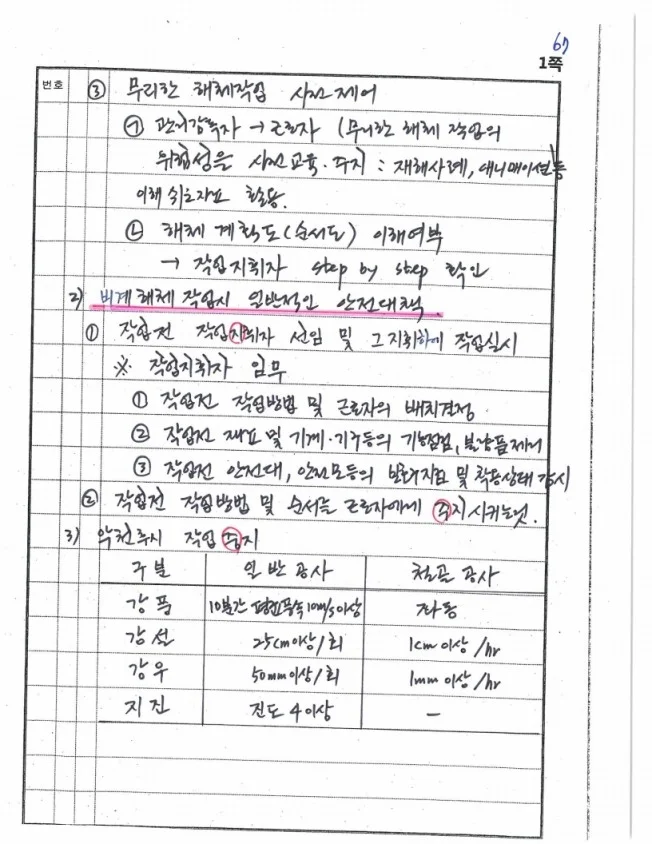 67
1쪽
번호
③ 무리한 해체작업 사전제어
㉠ 관리감독자 → 근로자 (무리한 해체 작업의
위험성을 사전교육·주지 : 재해사례, 애니메이션 등
이해 쉬운자료 활용.
㉡ 해체 계획도(순서도) 이해여부
→ 작업지휘자 step by step 확인
2) 비계 해체 작업시 일반적인 안전대책.
① 작업전 작업지휘자 선임 및 그 지휘하에 작업실시
※ 작업지휘자 임무
① 작업전 작업방법 및 근로자의 배치결정
② 작업전 재료 및 기계·기구등의 기능점검, 불량품제거
③ 작업전 안전대, 안전모등의 보호구지급 및 착용상태 감시
② 작업전 작업방법 및 순서를 근로자에게 주지시키는것.
3) 악천후시 작업중지
구분 일반공사 철골공사
강풍 10분간 평균풍속 10m/s이상 좌동
강설 25cm이상/회 1cm이상/hr
강우 50mm이상/회 1mm이상/hr
지진 진도 4이상 -